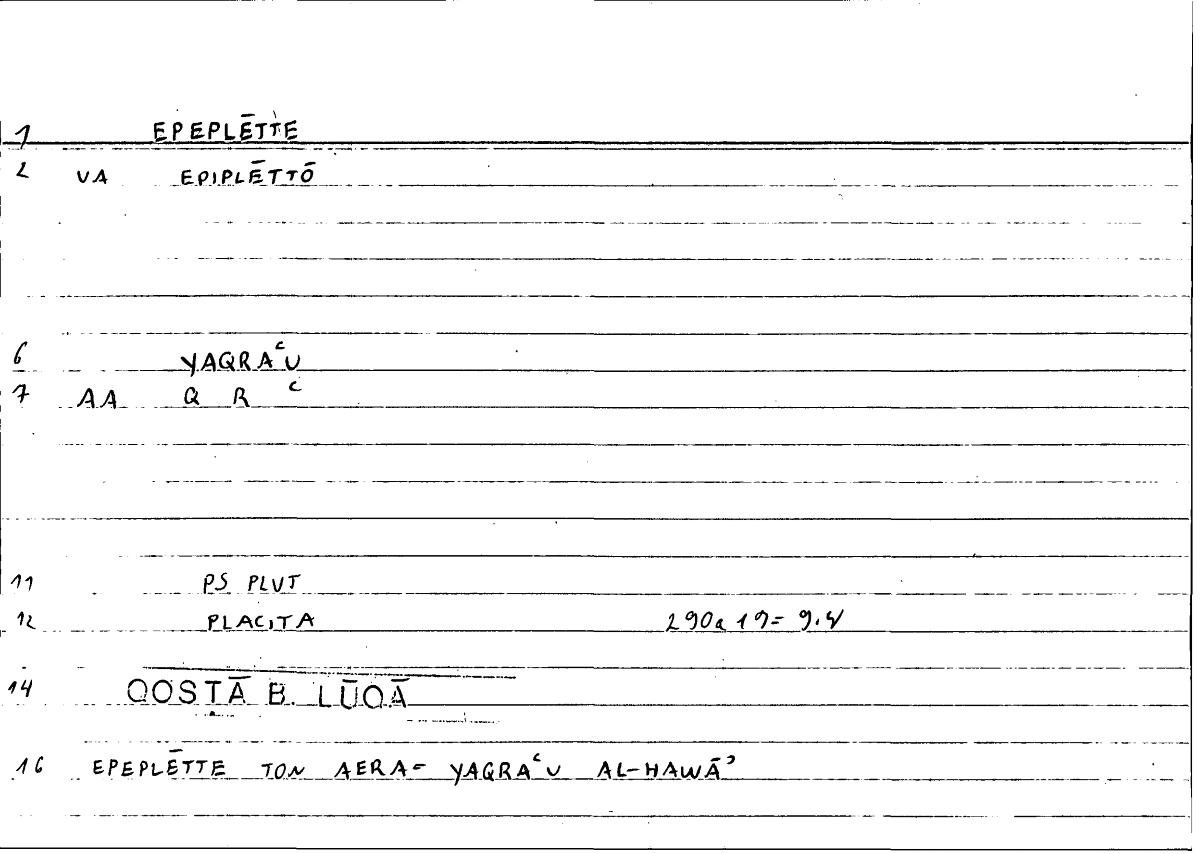 1 EPEPLĒTTE
2 VA EPIPLĒTTŌ
6 YAQRAʿU
7 AA Q R ʿ
11 PS PLUT
12 PLACITA 290a 19= 9.4
14 QOSTĀ B. LŪQĀ
16 EPEPLĒTTE TON AERA= YAQRAʿU AL-HAWĀʾ